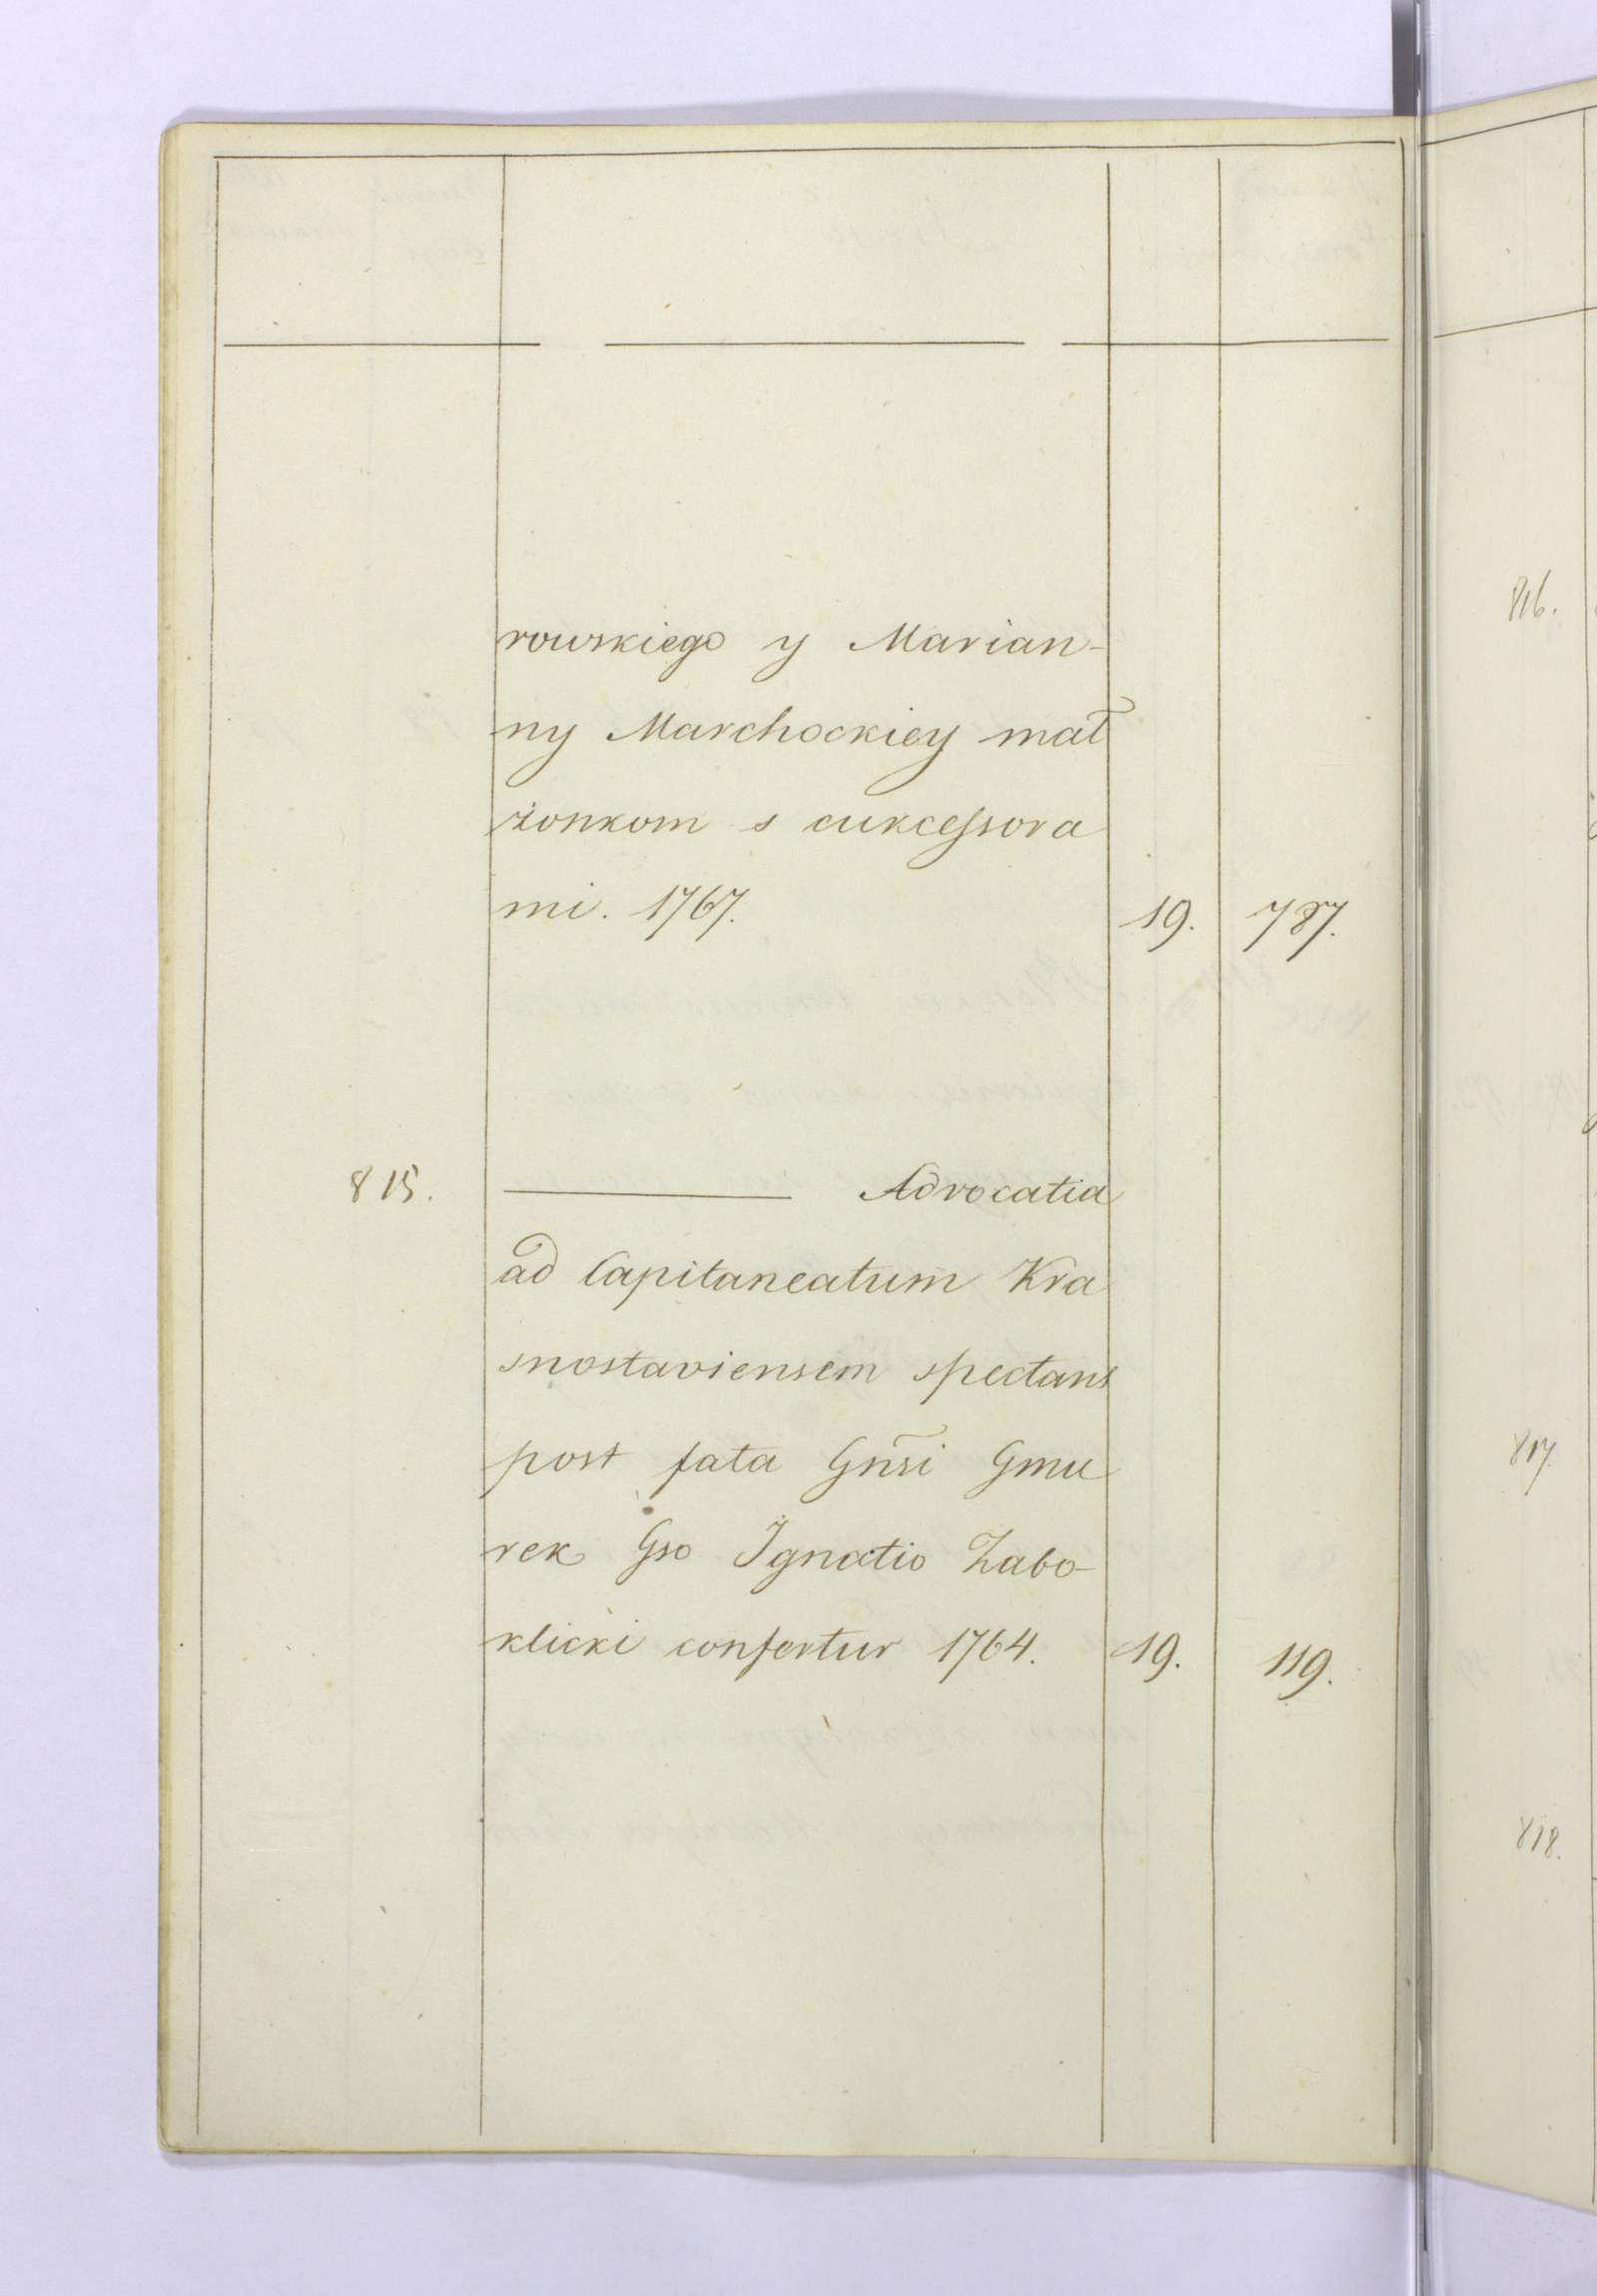 rowskiego y Marian-
ny Marchockiey mał
żonkom s cukcessora
mi. 1767. 19. 787.
815. ——— Advocatia
ad Capitaneatum Kra
snostaviensem spectans
post fata Gnsi Gmu
rek Gso Ignatio Zabo-
klicki confertur 1764. 19. 119.
816.
817.
818.